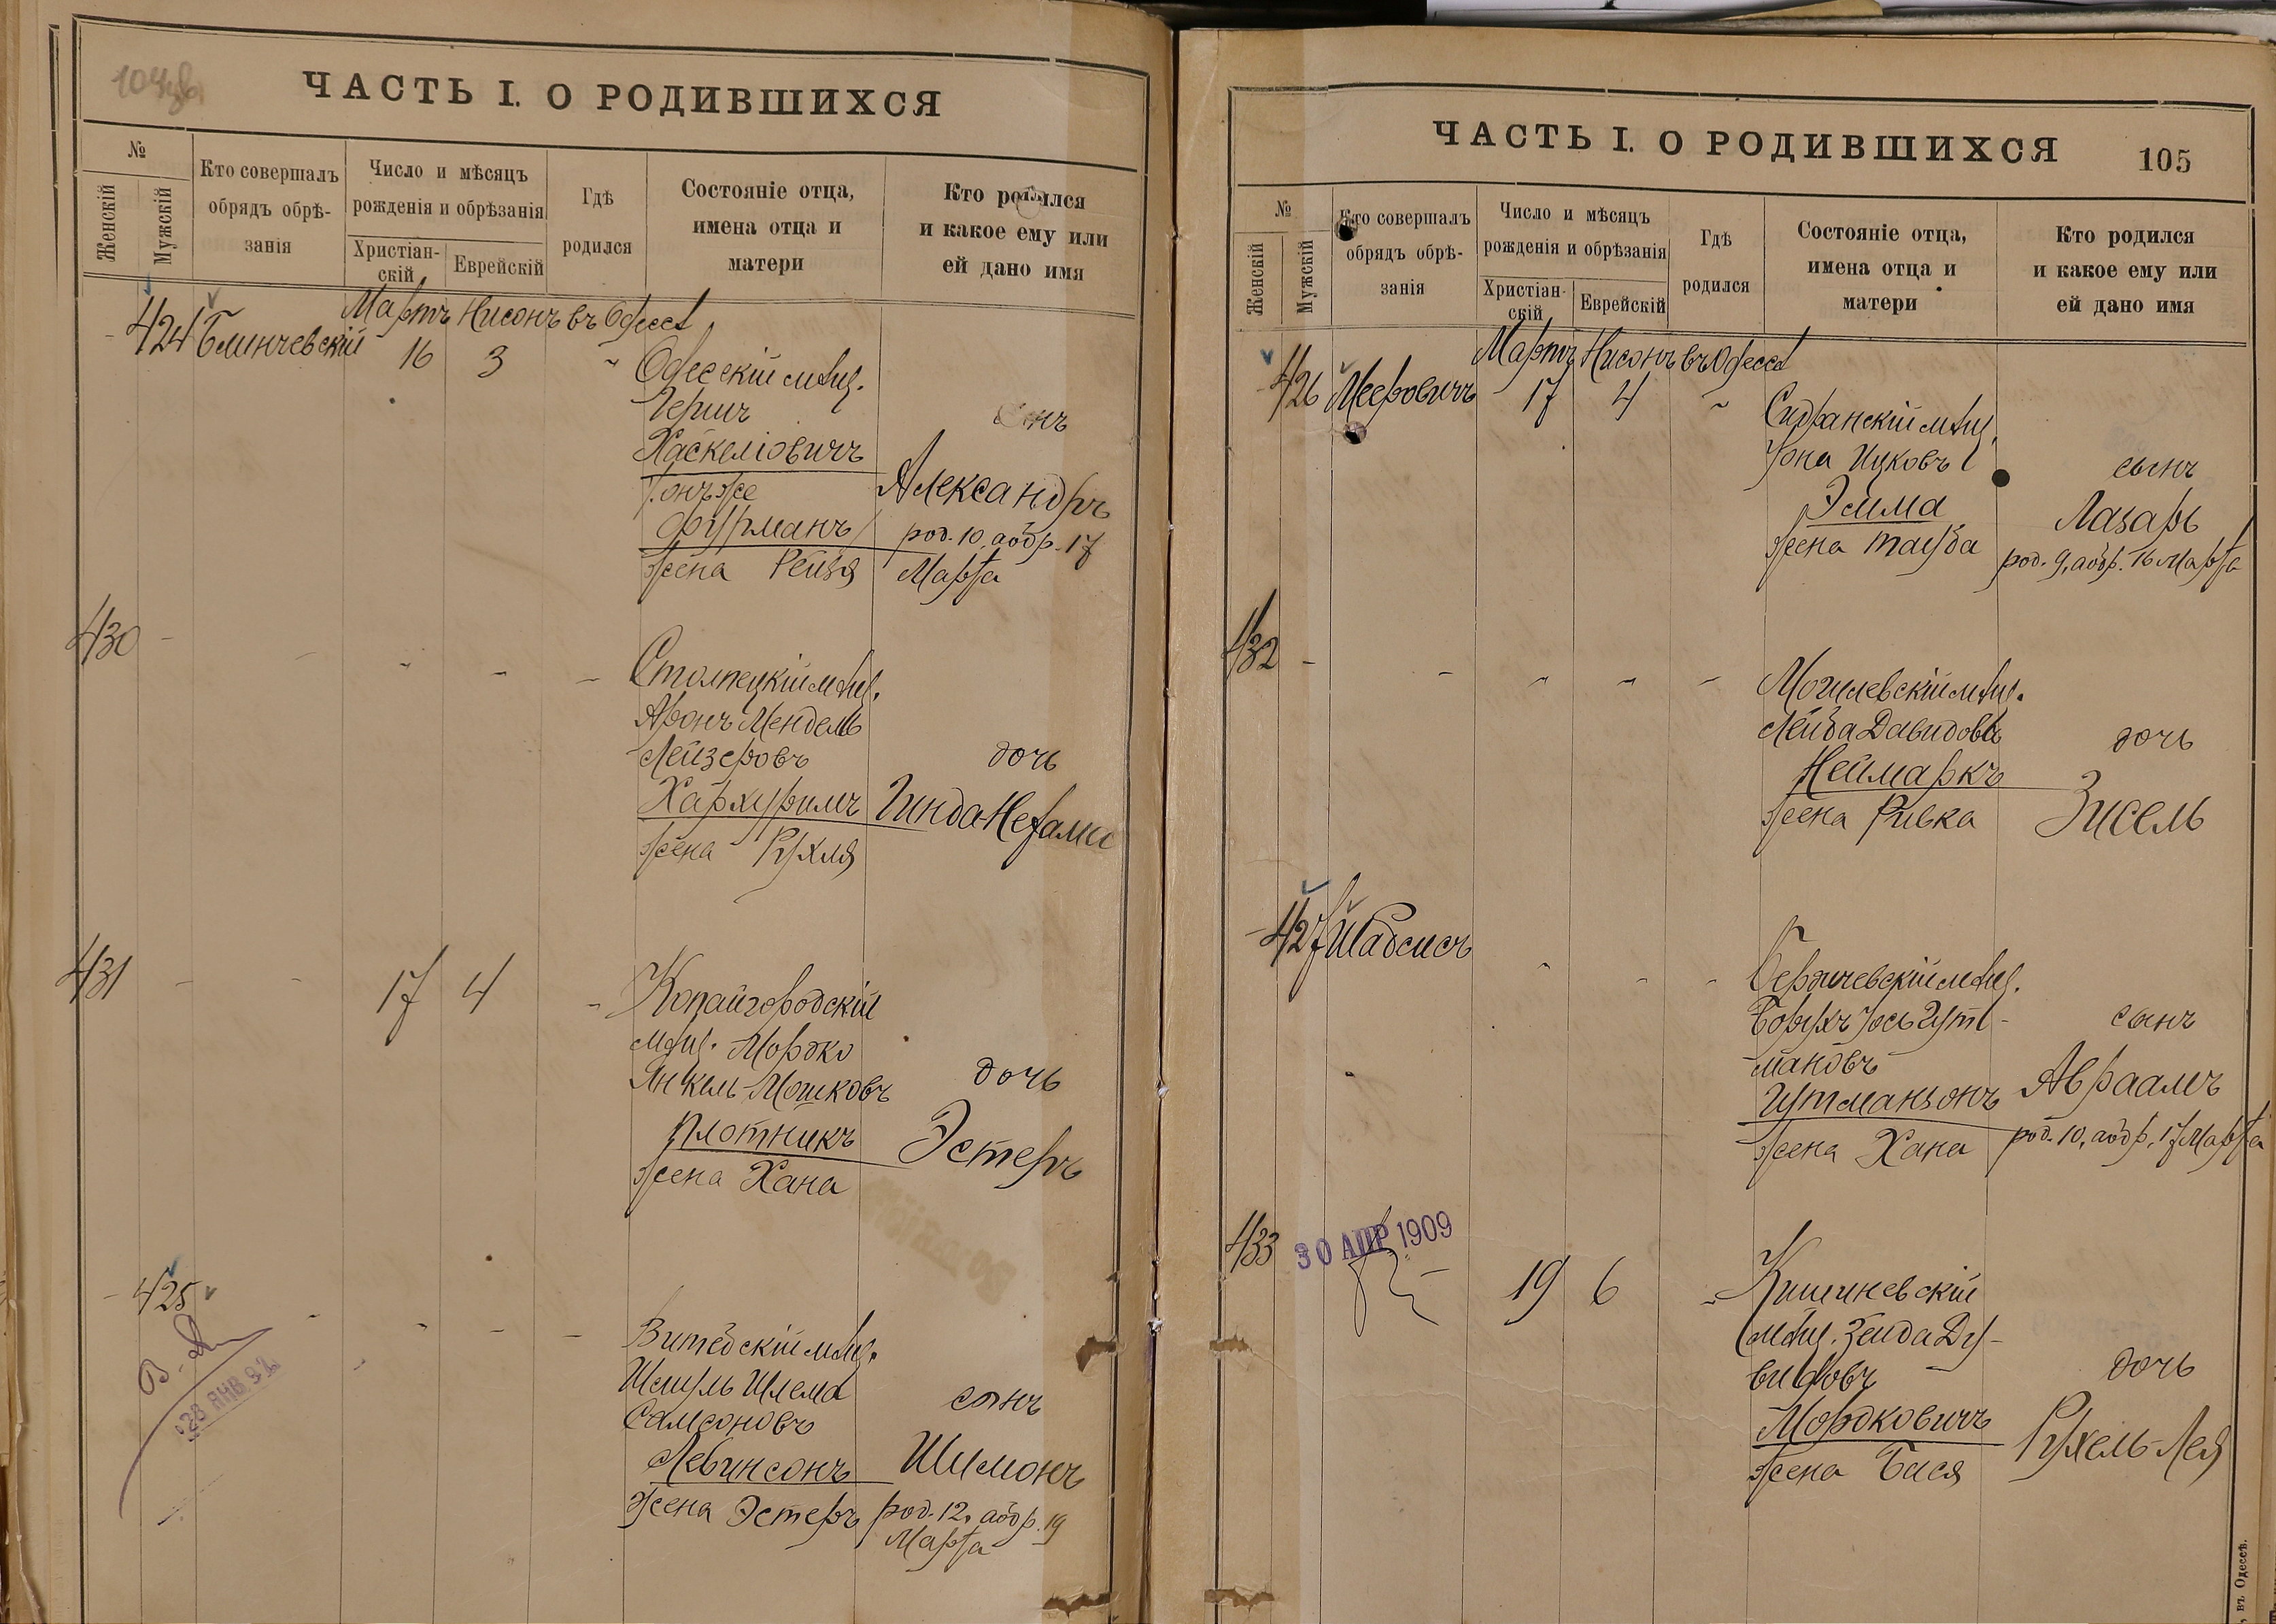 ЧАСТЬ I. О РОДИВШИХСЯ
№
Женскій
Мужскій
Кто совершалъ
обрядъ обрѣ-
занія
Число и мѣсяцъ
рожденія и обрѣзанія
Христіан-
скій
Еврейскій
Гдѣ
родился
Состояніе отца,
имена отца и
матери
Кто родился
и какое ему или
ей дано имя
Мартъ Нисонъ въ Одессѣ
424 Блинчевскій 16 3
Одесскій мѣщ.
Герш
Хаскеліовичъ
онъ же
Фурманъ
жена Рейзя
сынъ
Александръ
род. 10, аобр. 17
Марта
430
Столпецкій мѣщ.
Аронъ Мендель
Лейзеровъ
Хархуримъ
жена Рухля
дочь
Гинда-Нехама
431 17 4
Копайгородскій
мѣщ. Мордко
Янкель Мошковъ
Плотникъ
жена Хана
дочь
Эстеръ
425
28 ЯНВ 92
Витебскій мѣщ.
Шмуль Шлема
Самсоновъ
Левинсонъ
жена Эстеръ
сынъ
Шимонъ
род. 12, аобр. 19
Марта
ЧАСТЬ I. О РОДИВШИХСЯ
105
№
Женскій
Мужскій
Кто совершалъ
обрядъ обрѣ-
занія
Число и мѣсяцъ
рожденія и обрѣзанія
Христіан-
скій
Еврейскій
Гдѣ
родился
Состояніе отца,
имена отца и
матери
Кто родился
и какое ему или
ей дано имя
Мартъ Нисонъ въ Одессѣ
426 Мееровичъ 17 4
мѣщ.
Іона Ицковъ
жена Тауба
сынъ
Лазарь
род. 9, аобр. 16 Марта
432
Могилевскій мѣщ.
Лейба Давидовъ
Неймаркъ
жена Ривка
дочь
Зисель
427 Шабсисъ
Бердичевскій мѣщ.
Борухъ Іось Гут-
мановъ
Гутманзонъ
жена Хана
сынъ
Авраамъ
род. 10, аобр. 17 Марта
433
30 АПР 1909
19 6
Кишиневскій
мѣщ. Зейда Ду-
видовъ
Мордковичъ
жена Бася
дочь
Рухель-Лея
, въ Одессѣ.